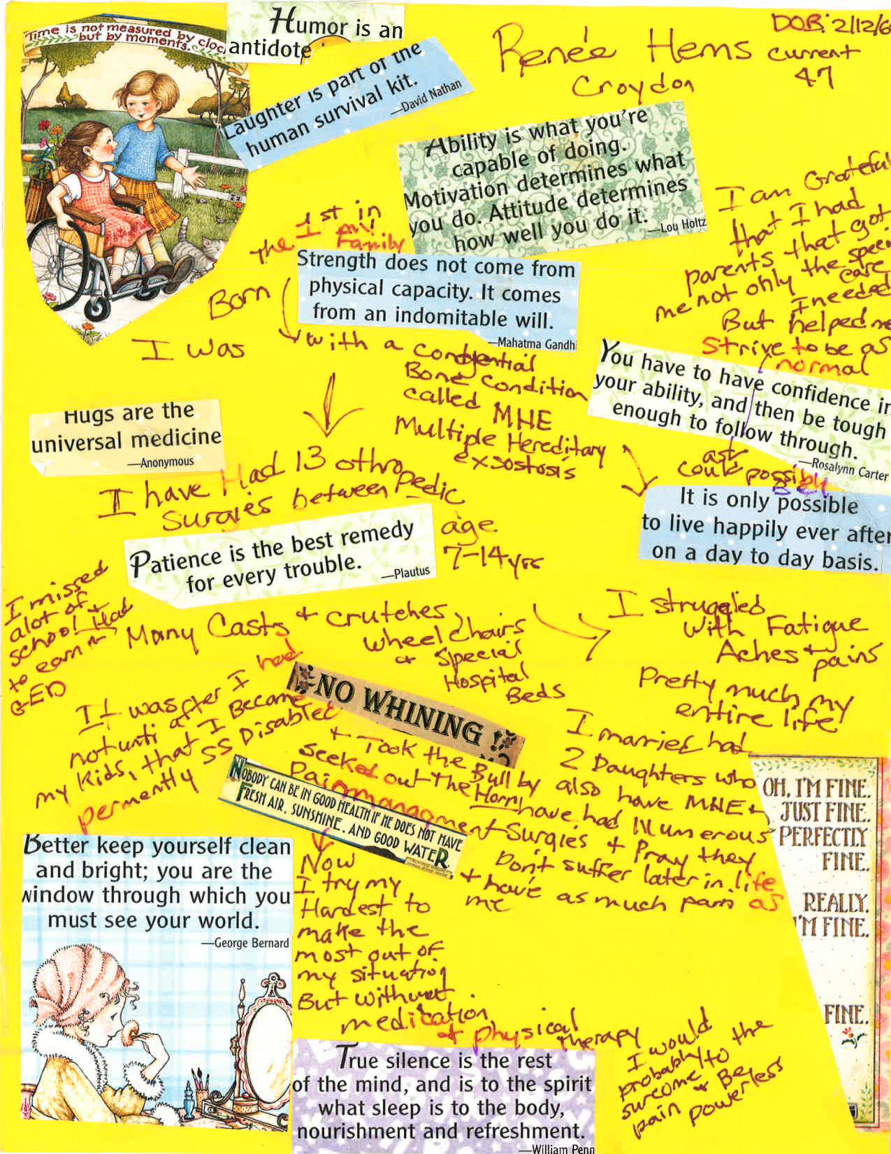 Time is not measured by cloc
but by moments.
Humor is an
antidote
Laughter is part of the
human survival kit.
—David Nathan
Renée Hems
Croydon
DOB: 2/12/6
current
47
Ability is what you're
capable of doing.
Motivation determines what
you do. Attitude determines
how well you do it.
—Lou Holtz
I am Grateful
that I had
parents that got
me not only the speci
care
I needed
But helped me
Strive to be as
normal
as I
could possible
Be
the 1st in
my
Family
Strength does not come from
physical capacity. It comes
from an indomitable will.
—Mahatma Gandhi
Born
I was
with a
Bone Condition
called MHE
Multiple Hereditary
exsostosis
You have to have confidence in
your ability, and then be tough
enough to follow through.
—Rosalynn Carter
It is only possible
to live happily ever after
on a day to day basis.
Hugs are the
universal medicine
—Anonymous
I have Had 13 othro
Pedic
Surgies between
age
7-14 yrs
Patience is the best remedy
for every trouble.
—Plautus
I missed
alot of
school Had
to earn
GED
Many Casts + crutches
wheel Chairs
+ Special
Hospital
Beds
I struggled
with Fatigue
Aches + pains
Pretty much my
entire life!
It was
not unti after I had
my Kids, that I Became
permently SS Disabled
NO WHINING!
+ Took the Bull by
the Horn
seeked out
Pain managment
NOBODY CAN BE IN GOOD HEALTH IF HE DOES NOT HAVE
FRESH AIR, SUNSHINE, AND GOOD WATER
I married had
2 Daughters who
also have MHE +
have had Numerous
Surgies + Pray they
Don't suffer later in life
+ have as much pain as
me
OH, I'M FINE.
JUST FINE.
PERFECTLY
FINE.
REALLY.
I'M FINE.
FINE.
Better keep yourself clean
and bright; you are the
window through which you
must see your world.
—George Bernard
Now
I try my
Hardest to
make the
most out of
my situation
But without
medication
+ physical
therapy
I would
probably
surcome to the
pain + Be
powerless
True silence is the rest
of the mind, and is to the spirit
what sleep is to the body,
nourishment and refreshment.
—William Penn